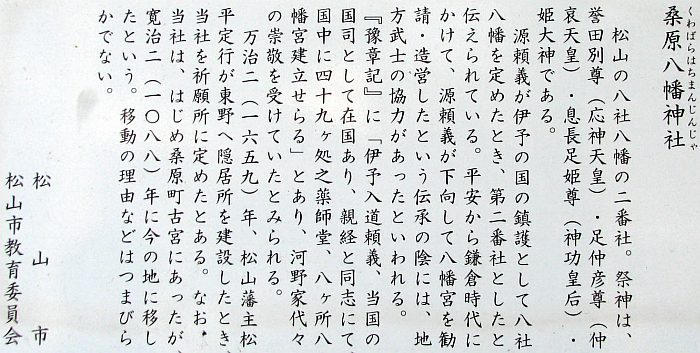 くわばらはちまんじんじゃ
桑原八幡神社
松山の八社八幡の二番社。祭神は、
誉田別尊（応神天皇）・足仲彦尊（仲
哀天皇）・息長足姫尊（神功皇后）・
姫大神である。
源頼義が伊予の国の鎮護として八社
八幡を定めたとき、第二番社としたと
伝えられている。平安から鎌倉時代に
かけて、源頼義が下向して八幡宮を勧
請・造営したという伝承の陰には、地
方武士の協力があったといわれる。
『豫章記』に「伊予入道頼義、当国の
国司として在国あり、親経と同志にて、
国中に四十九ヶ処之薬師堂、八ヶ所八
幡宮建立せらる」とあり、河野家代々
の崇敬を受けていたとみられる。
万治二（一六五九）年、松山藩主松
平定行が東野へ隠居所を建設したとき、
当社を祈願所に定めたとある。なお、
当社は、はじめ桑原町古宮にあったが、
寛治二（一〇八八）年に今の地に移し
たという。移動の理由などはつまびら
かでない。
松山市
松山市教育委員会